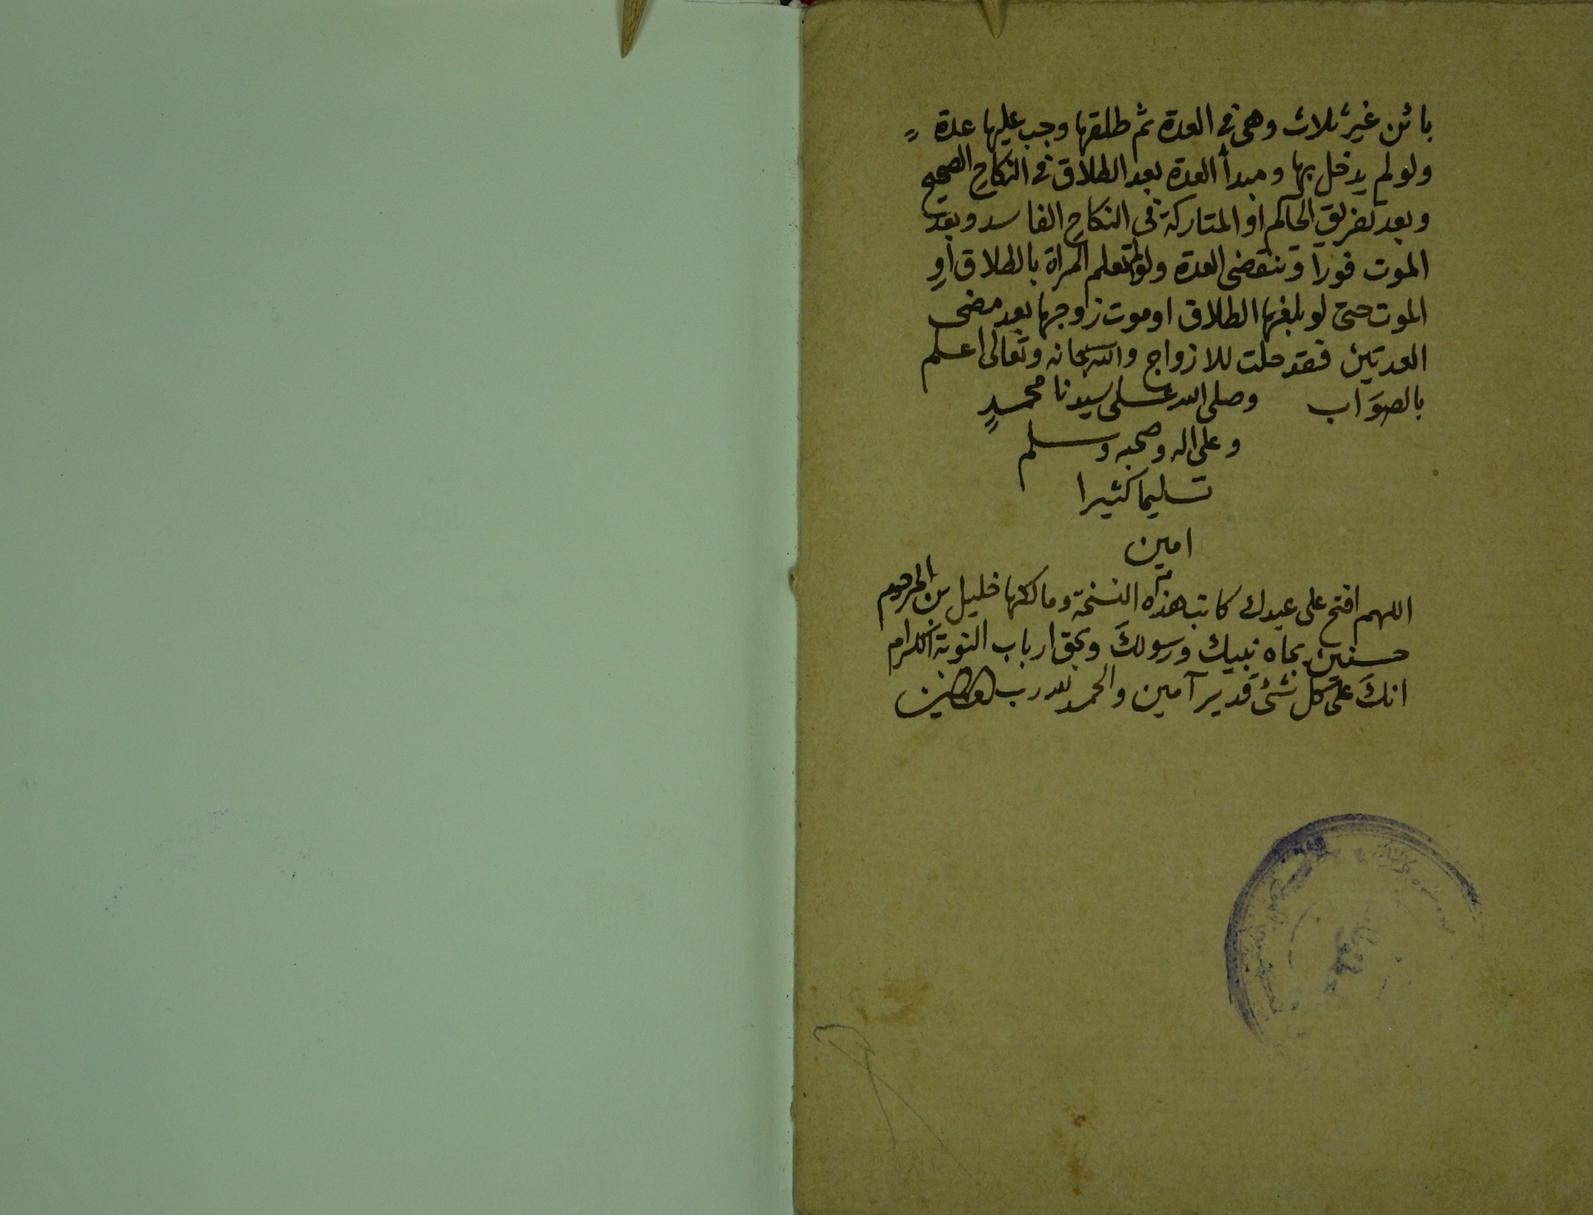 بائن غير ثلاث وهى فى العدة ثم طلقها وجب عليها عدة
ولو لم يدخل بها ومبدأ العدة بعد الطلاق فى النكاح الصحيح
وبعد تفريق الحاكم او المتاركة فى النكاح الفاسد وبعد
الموت فورا وتنقضى العدة ولو لم تعلم المراة بالطلاق او
الموت حتى لو بلغها الطلاق او موت زوجها بعد مضى
العدتين فقد حلت للازواج والله سبحانه وتعالى اعلم
بالصواب وصلى الله على سيدنا محمد
وعلى اله وصحبه وسلم
تسليما كثيرا
امين
اللهم افتح على عبدك كاتب هذه النسخة ومالكها خليل بن المرحوم
حسنين بجاه نبيك ورسولك وبحق ارباب النوبة الكرام
انك على كل شئ قدير آمين والحمد لله رب العالمين